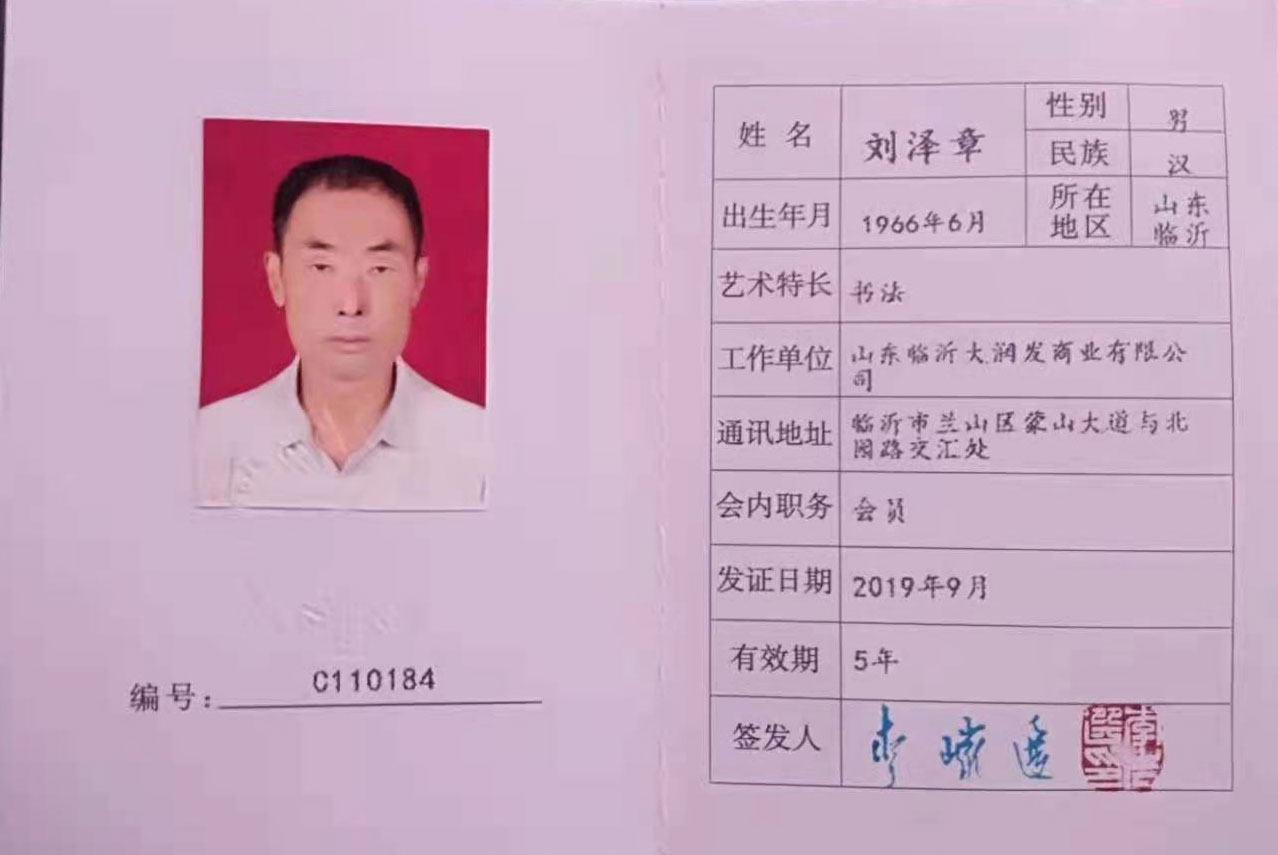 编号：C110184
姓名 刘泽章 性别 男
民族 汉
出生年月 1966年6月 所在地区 山东临沂
艺术特长 书法
工作单位 山东临沂大润发商业有限公
司
通讯地址 临沂市兰山区蒙山大道与北
园路交汇处
会内职务 会员
发证日期 2019年9月
有效期 5年
签发人